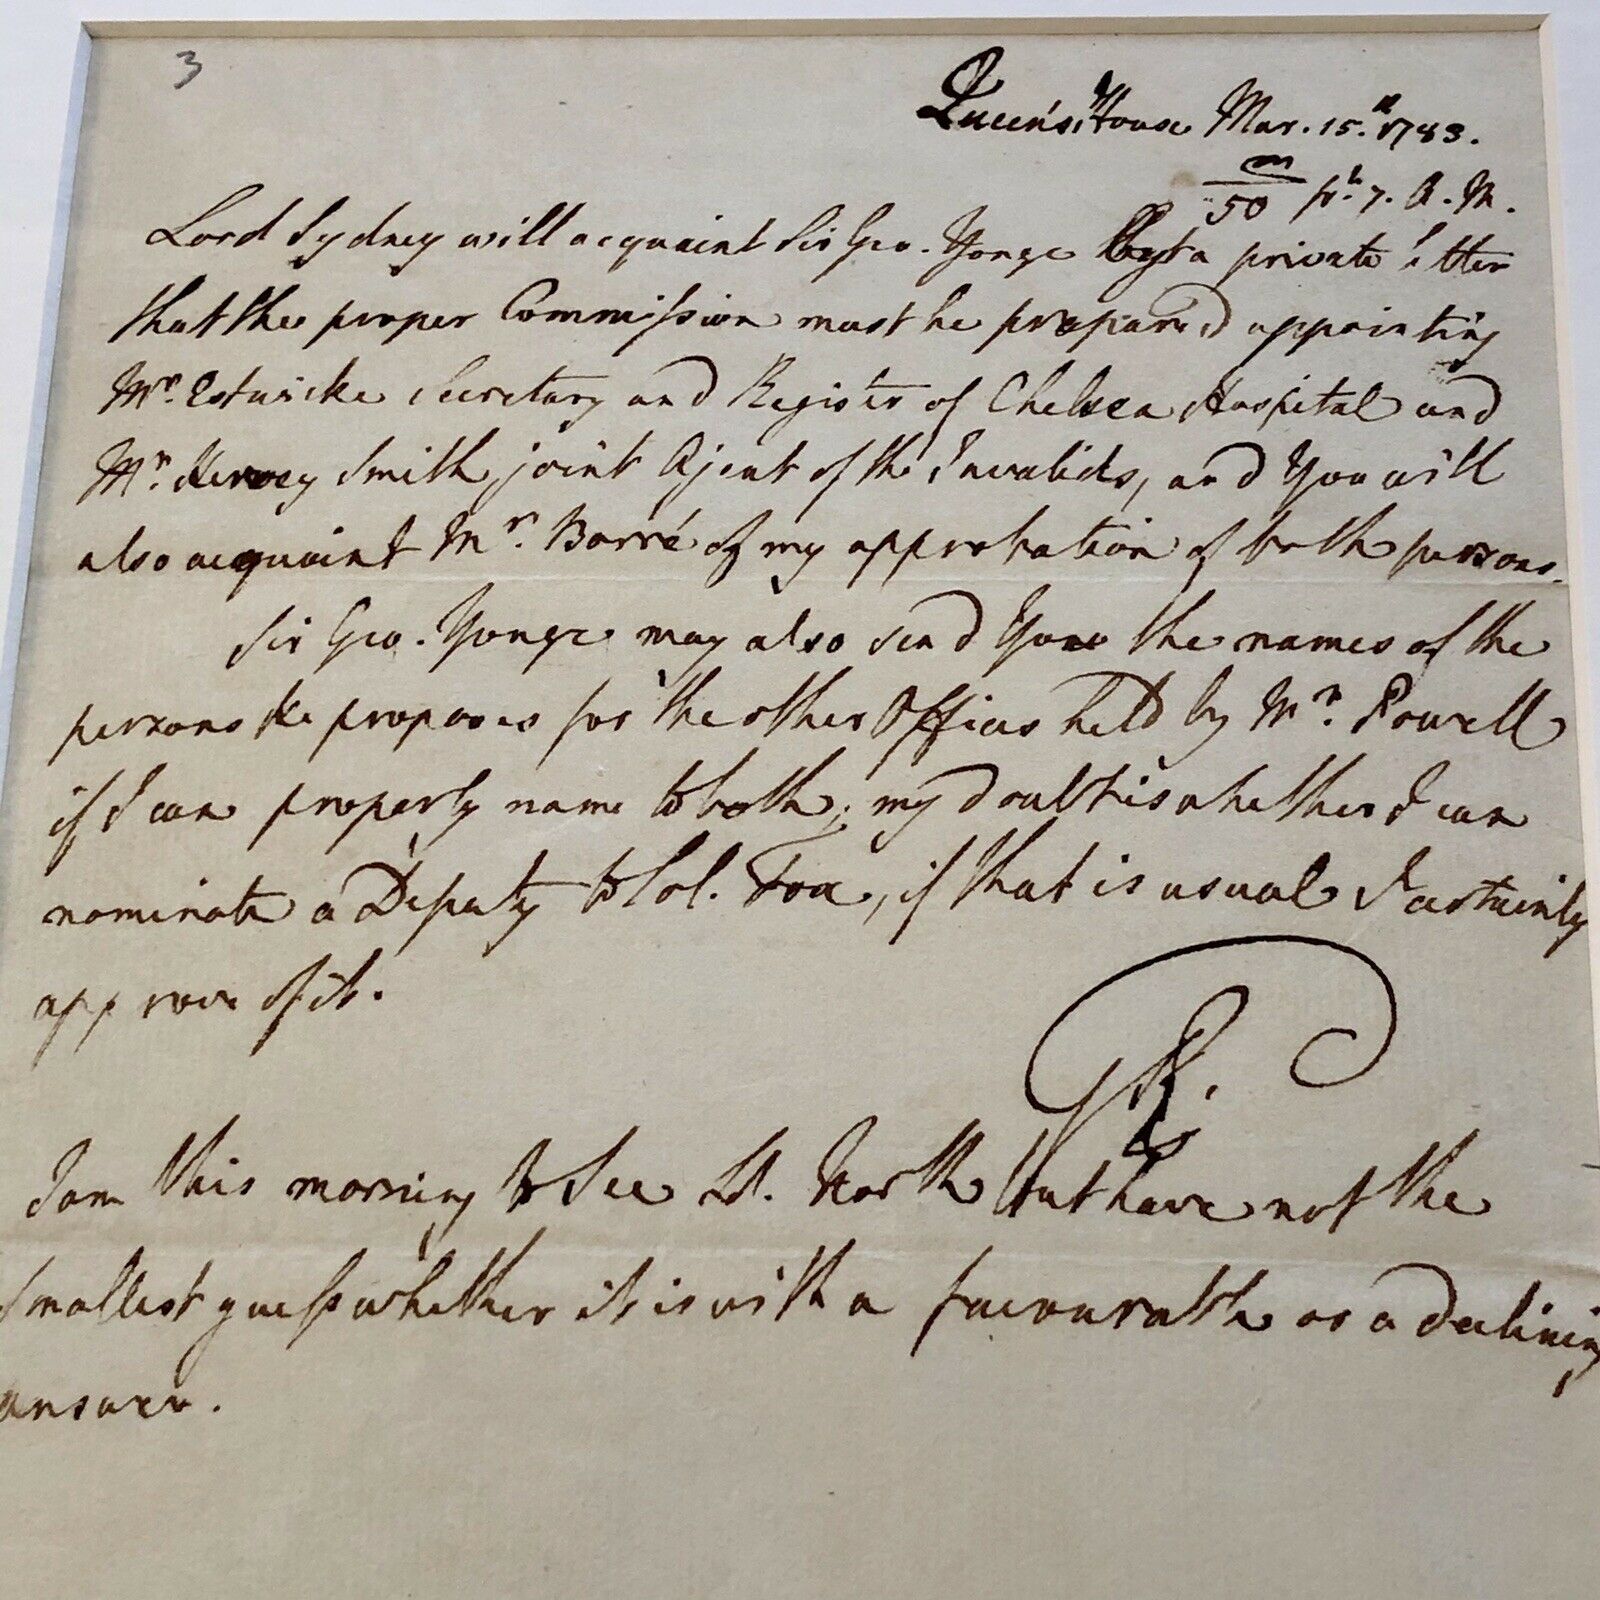 3
Queen's House Mar. 15.th 1783.
m
50 pt. 7. A. M.
Lord Sydney will acquaint Sir Geo. Yonge by a private letter
that the proper Commission must be prepared appointing
Mr. Estwicke Secretary and Register of Chelsea Hospital and
Mr. Hervey Smith joint Agent of the Invalids, and You will
also acquaint Mr. Barré of my approbation of both persons.
Sir Geo. Yonge may also send You the names of the
persons He proposes for the other Offices held by Mr. Powell
if I can properly name to both; my doubt is whether I can
nominate a Deputy to Col. Fox, if that is usual I certainly
approve of it.
GR.
I am this morning to See Ld. North but have not the
smallest guess whether it is with a favourable or a declining
answer.